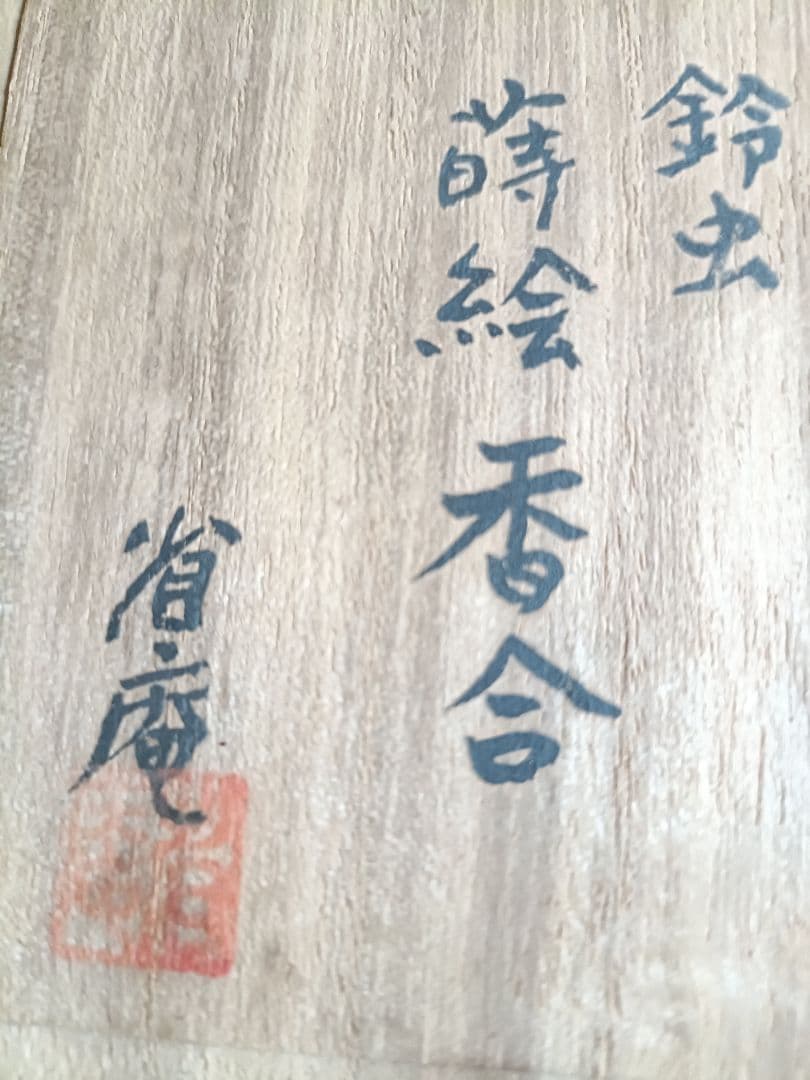 鈴虫
蒔絵 香合
省庵